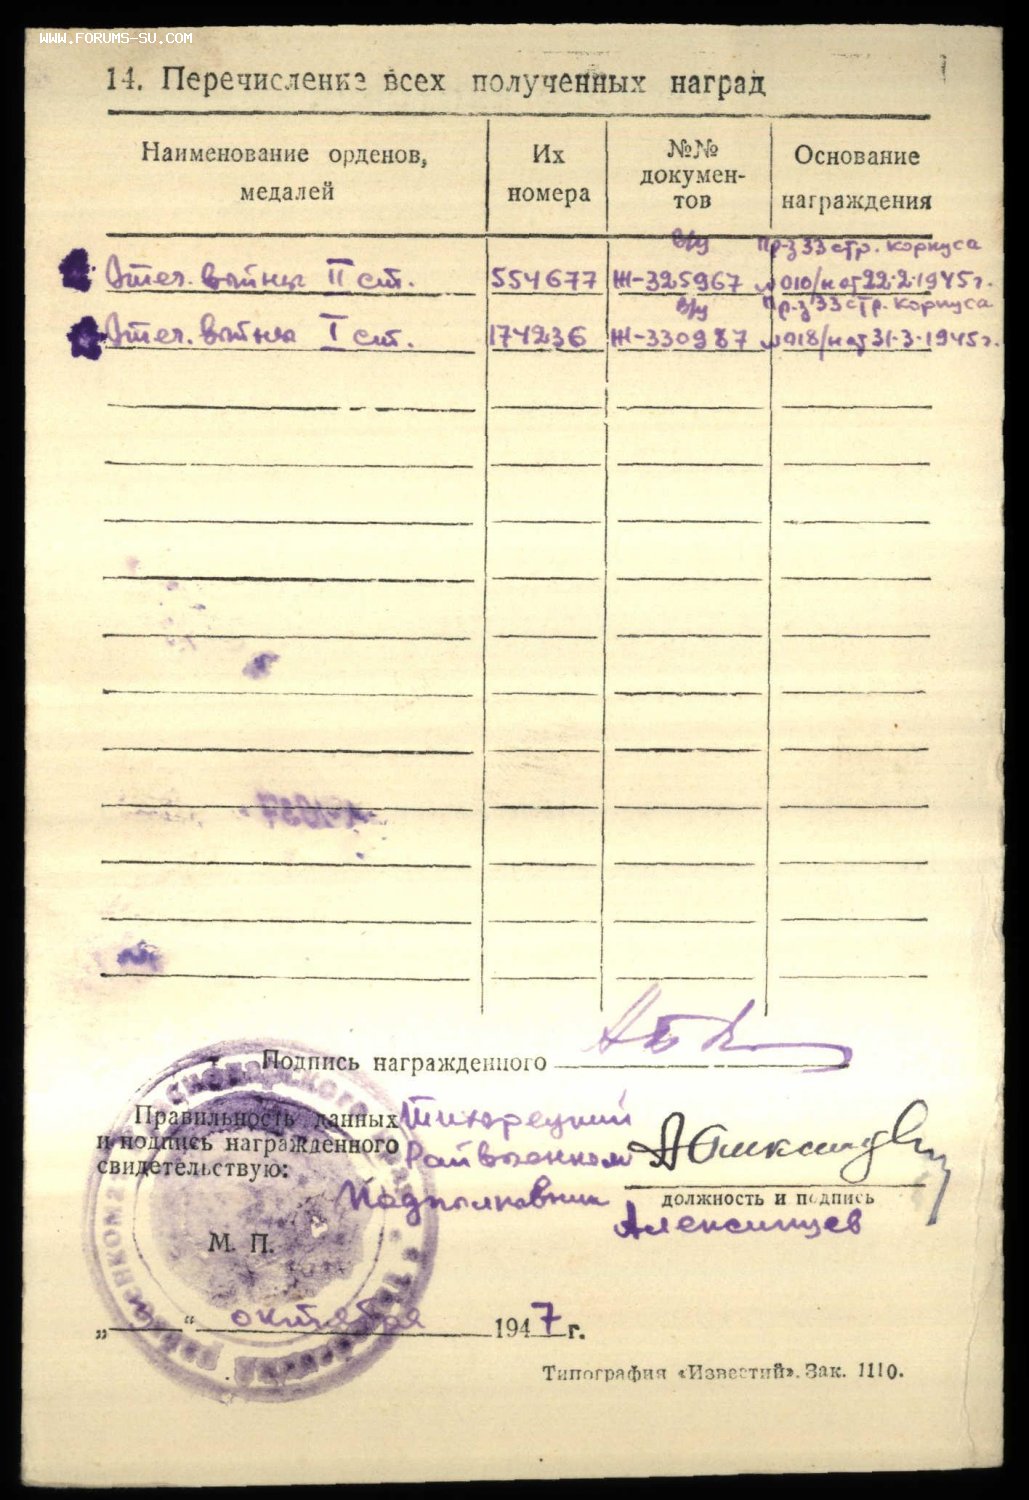 WWW.FORUMS-SU.COM
14. Перечисление всех полученных наград
Наименование орденов, медалей
Их номера
№№ докумен-тов
Основание награждения
в/у Пр-з 33 стр. корпуса
Отеч. войны II ст. 554677 Ж-325967 №010/н от 22.2.1945г.
в/у Пр-з 33 стр. корпуса
Отеч. войны I ст. 174236 Ж-330987 №018/н от 31.3.1945г.
Подпись награжденного
Правильность данных Тихорецкий
и подпись награжденного Райвоенком
свидетельствую:
Подполковник
должность и подпись
Алексинцев
М. П.
„ “ октября 1947 г.
Типография «Известий». Зак. 1110.